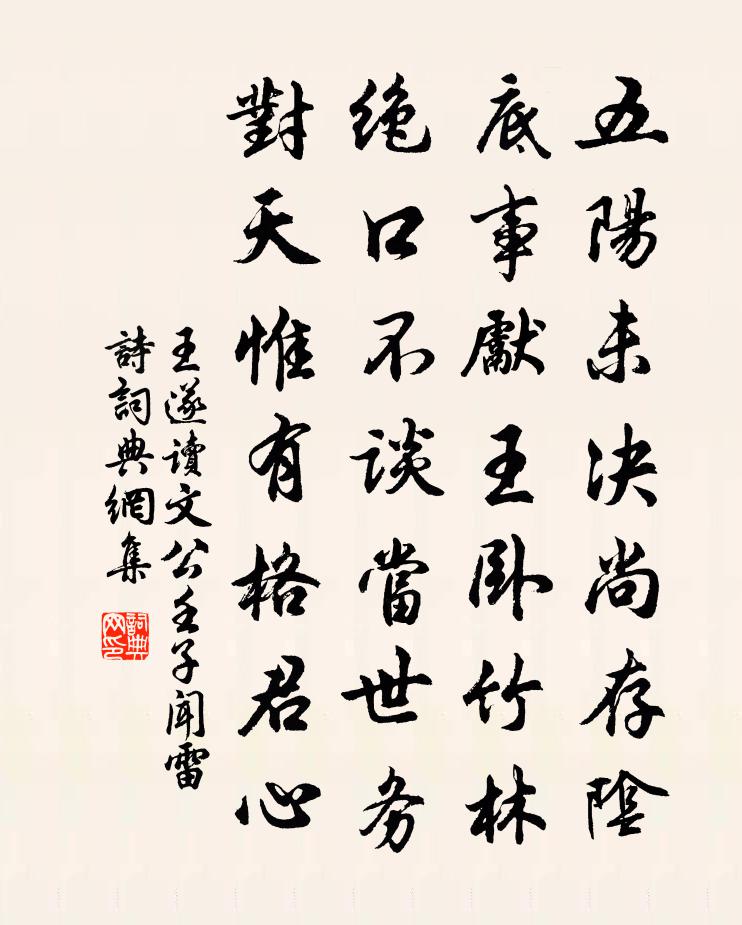 五陽未决尚存陰
底事獻王卧竹林
絶口不談當世务
對天惟有格君心
王遂讀文公壬子闻雷
詩詞典網集
詞典网印